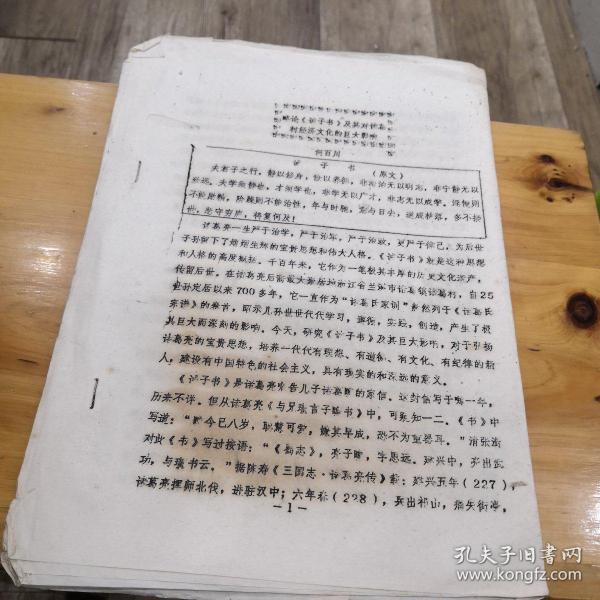 略论《诫子书》及其对诸葛
村经济文化的巨大影响
何百川
诫 子 书 （原文）
夫君子之行，静以修身，俭以养德，非澹泊无以明志，非宁静无以
致远。夫学须静也，才须学也，非学无以广才，非志无以成学。淫慢则
不能励精，险躁则不能治性，年与时驰，意与日去，遂成枯落，多不接
世，悲守穷庐，将复何及！
诸葛亮一生严于治学，严于治军，严于治政，更严于律己，为后世
子孙留下了熠熠生辉的宝贵思想和伟大人格。《诫子书》就是这种思想
和人格的高度概括。千百年来，它作为一笔极其丰厚的历史文化遗产，
传留后世。在诸葛亮后裔最大聚居地浙江省兰溪市诸葛镇诸葛村，自25
世孙定居以来700多年，它一直作为“诸葛氏家训”赫然列于《诸葛氏
宗谱》的卷书，昭示儿孙世世代代学习，遵循，实践，创造，产生了极
其巨大而深刻的影响。今天，研究《诫子书》及其巨大影响，对于弘扬
诸葛亮的宝贵思想，培养一代代有理想、有道德、有文化、有纪律的新
人，建设有中国特色的社会主义，具有现实的和深远的意义。
《诫子书》是诸葛亮告儿子诸葛瞻的家信。这封信写于哪一年，
历来不详。但从诸葛亮《与兄瑾言子瞻书》中，可见知一二。《书》中
写道：“瞻今已八岁，聪慧可爱，嫌其早成，恐不为重器耳。”清张澍
对此《书》写过按语：“《蜀志》，亮子瞻，字思远。建兴中，亮出武
功，与瑾书云。”据陈寿《三国志·诸葛亮传》载：建兴五年（227），
诸葛亮挥师北伐，进驻汉中；六年春（228），兵出祁山，痛失街亭，
—1—
孔夫子旧书网
www.kongfz.com